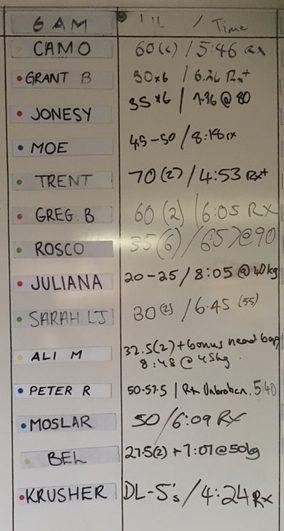 6 AM / Time
CAMO 60(6) / 5:46 Rx
GRANT B 50x6 / 6:26 Rx+
JONESY 35x6 / 7:36 @ 80
MOE 45-50 / 8:18 rx
TRENT 70(2) / 4:53 Rx+
GREG B 60(2) / 6:05 RX
ROSCO 55(6) / 6:57 @ 90
JULIANA 20-25 / 8:05 @ 40kg
SARAH LJ 30(2) / 6:45 (55)
ALI M 32.5(2) + bonus
8:48 @ 45kg.
PETER R 50-57.5 | Rx Unbroken. 5:40
MOSLAR 50 / 6:09 RX
BEL 27.5(2) + 7:07 @ 50kg
KRUSHER DL-5's / 4:24 Rx